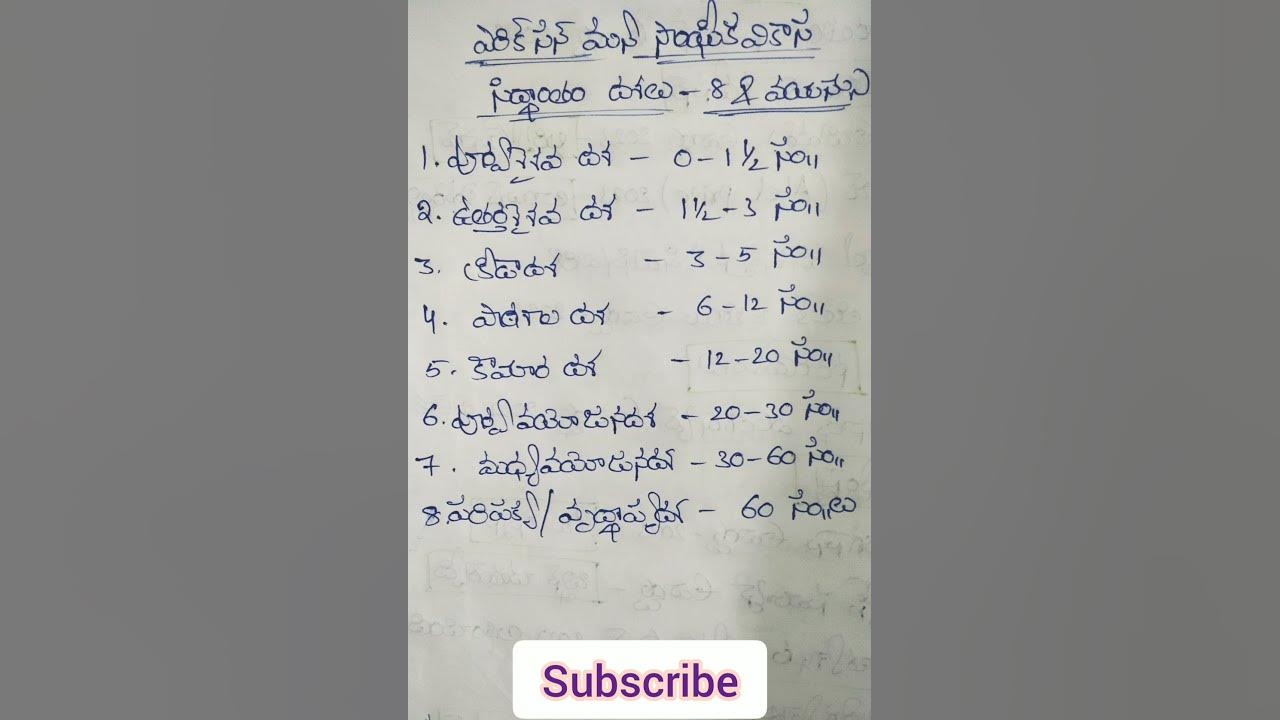 ఎరిక్ సన్ మనో సాంఘిక వికాస
సిద్ధాంతం దశలు - 8 & వయస్సు
1. పూర్వశైశవ దశ - 0-1 ½ సం॥
2. ఉత్తరశైశవ దశ - 1½-3 సం॥
3. క్రీడాదశ - 3-5 సం॥
4. పాఠశాల దశ - 6-12 సం॥
5. కౌమార దశ - 12-20 సం॥
6. పూర్వవయోజనదశ - 20-30 సం॥
7. మధ్యవయోజనదశ - 30-60 సం॥
8 పరిపక్వ/వృద్ధాప్యదశ - 60 సం.లు
Subscribe